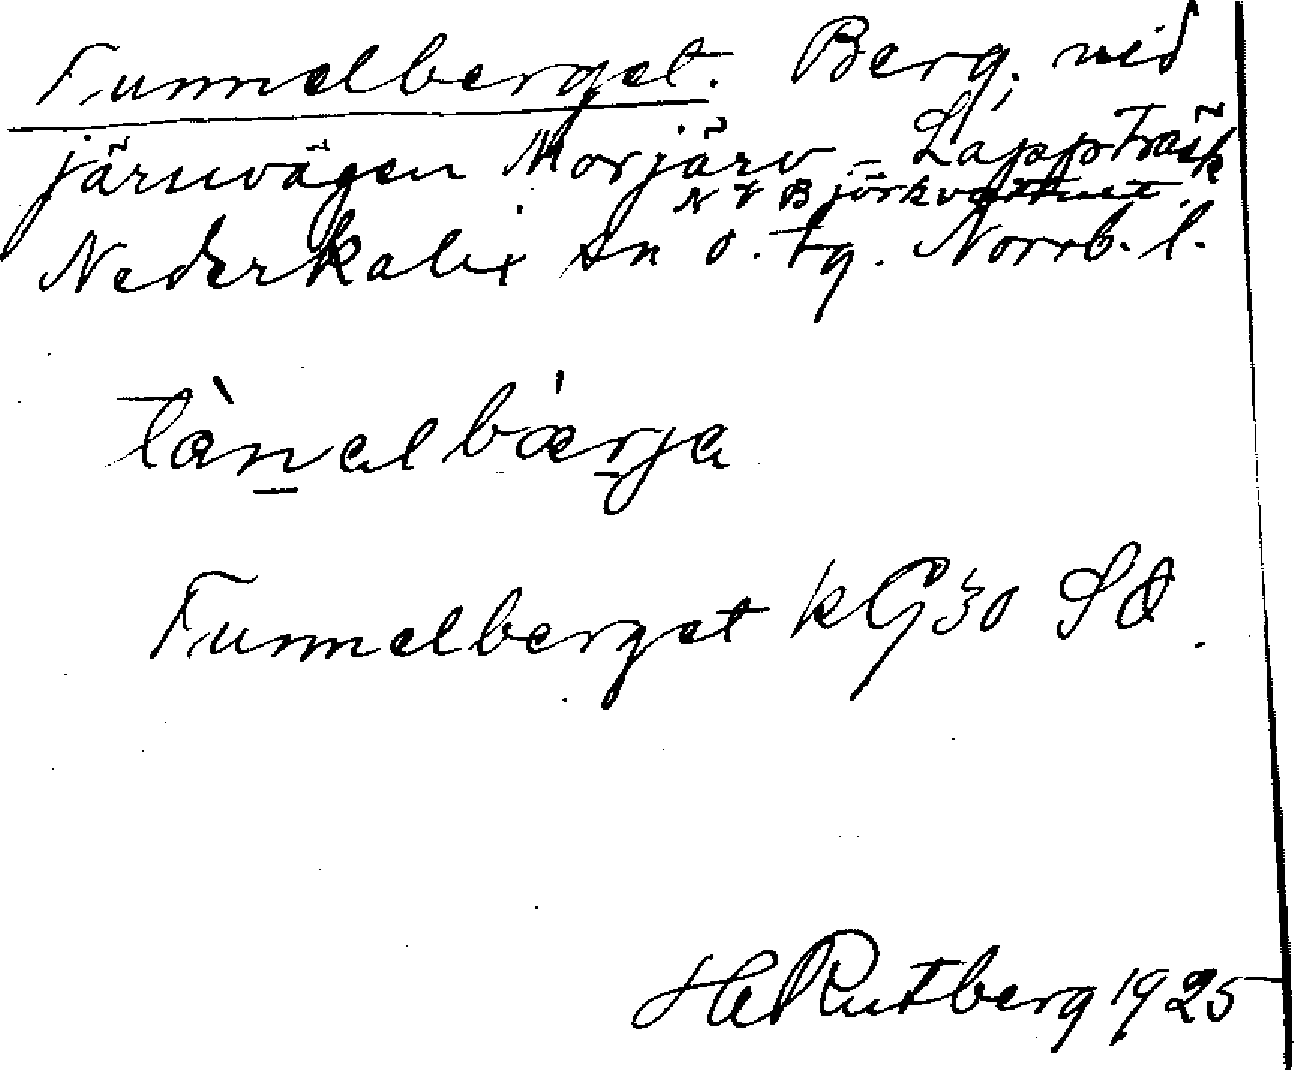 Tunnelberget. Berg, vid
järnvägen Morjärv – Lappträsk
N V Björkvattnet.
Nederkalix sn o. tg. Norrb. l.
tànalbærja
Tunnelberget kG30 SO.
HRutberg 1925